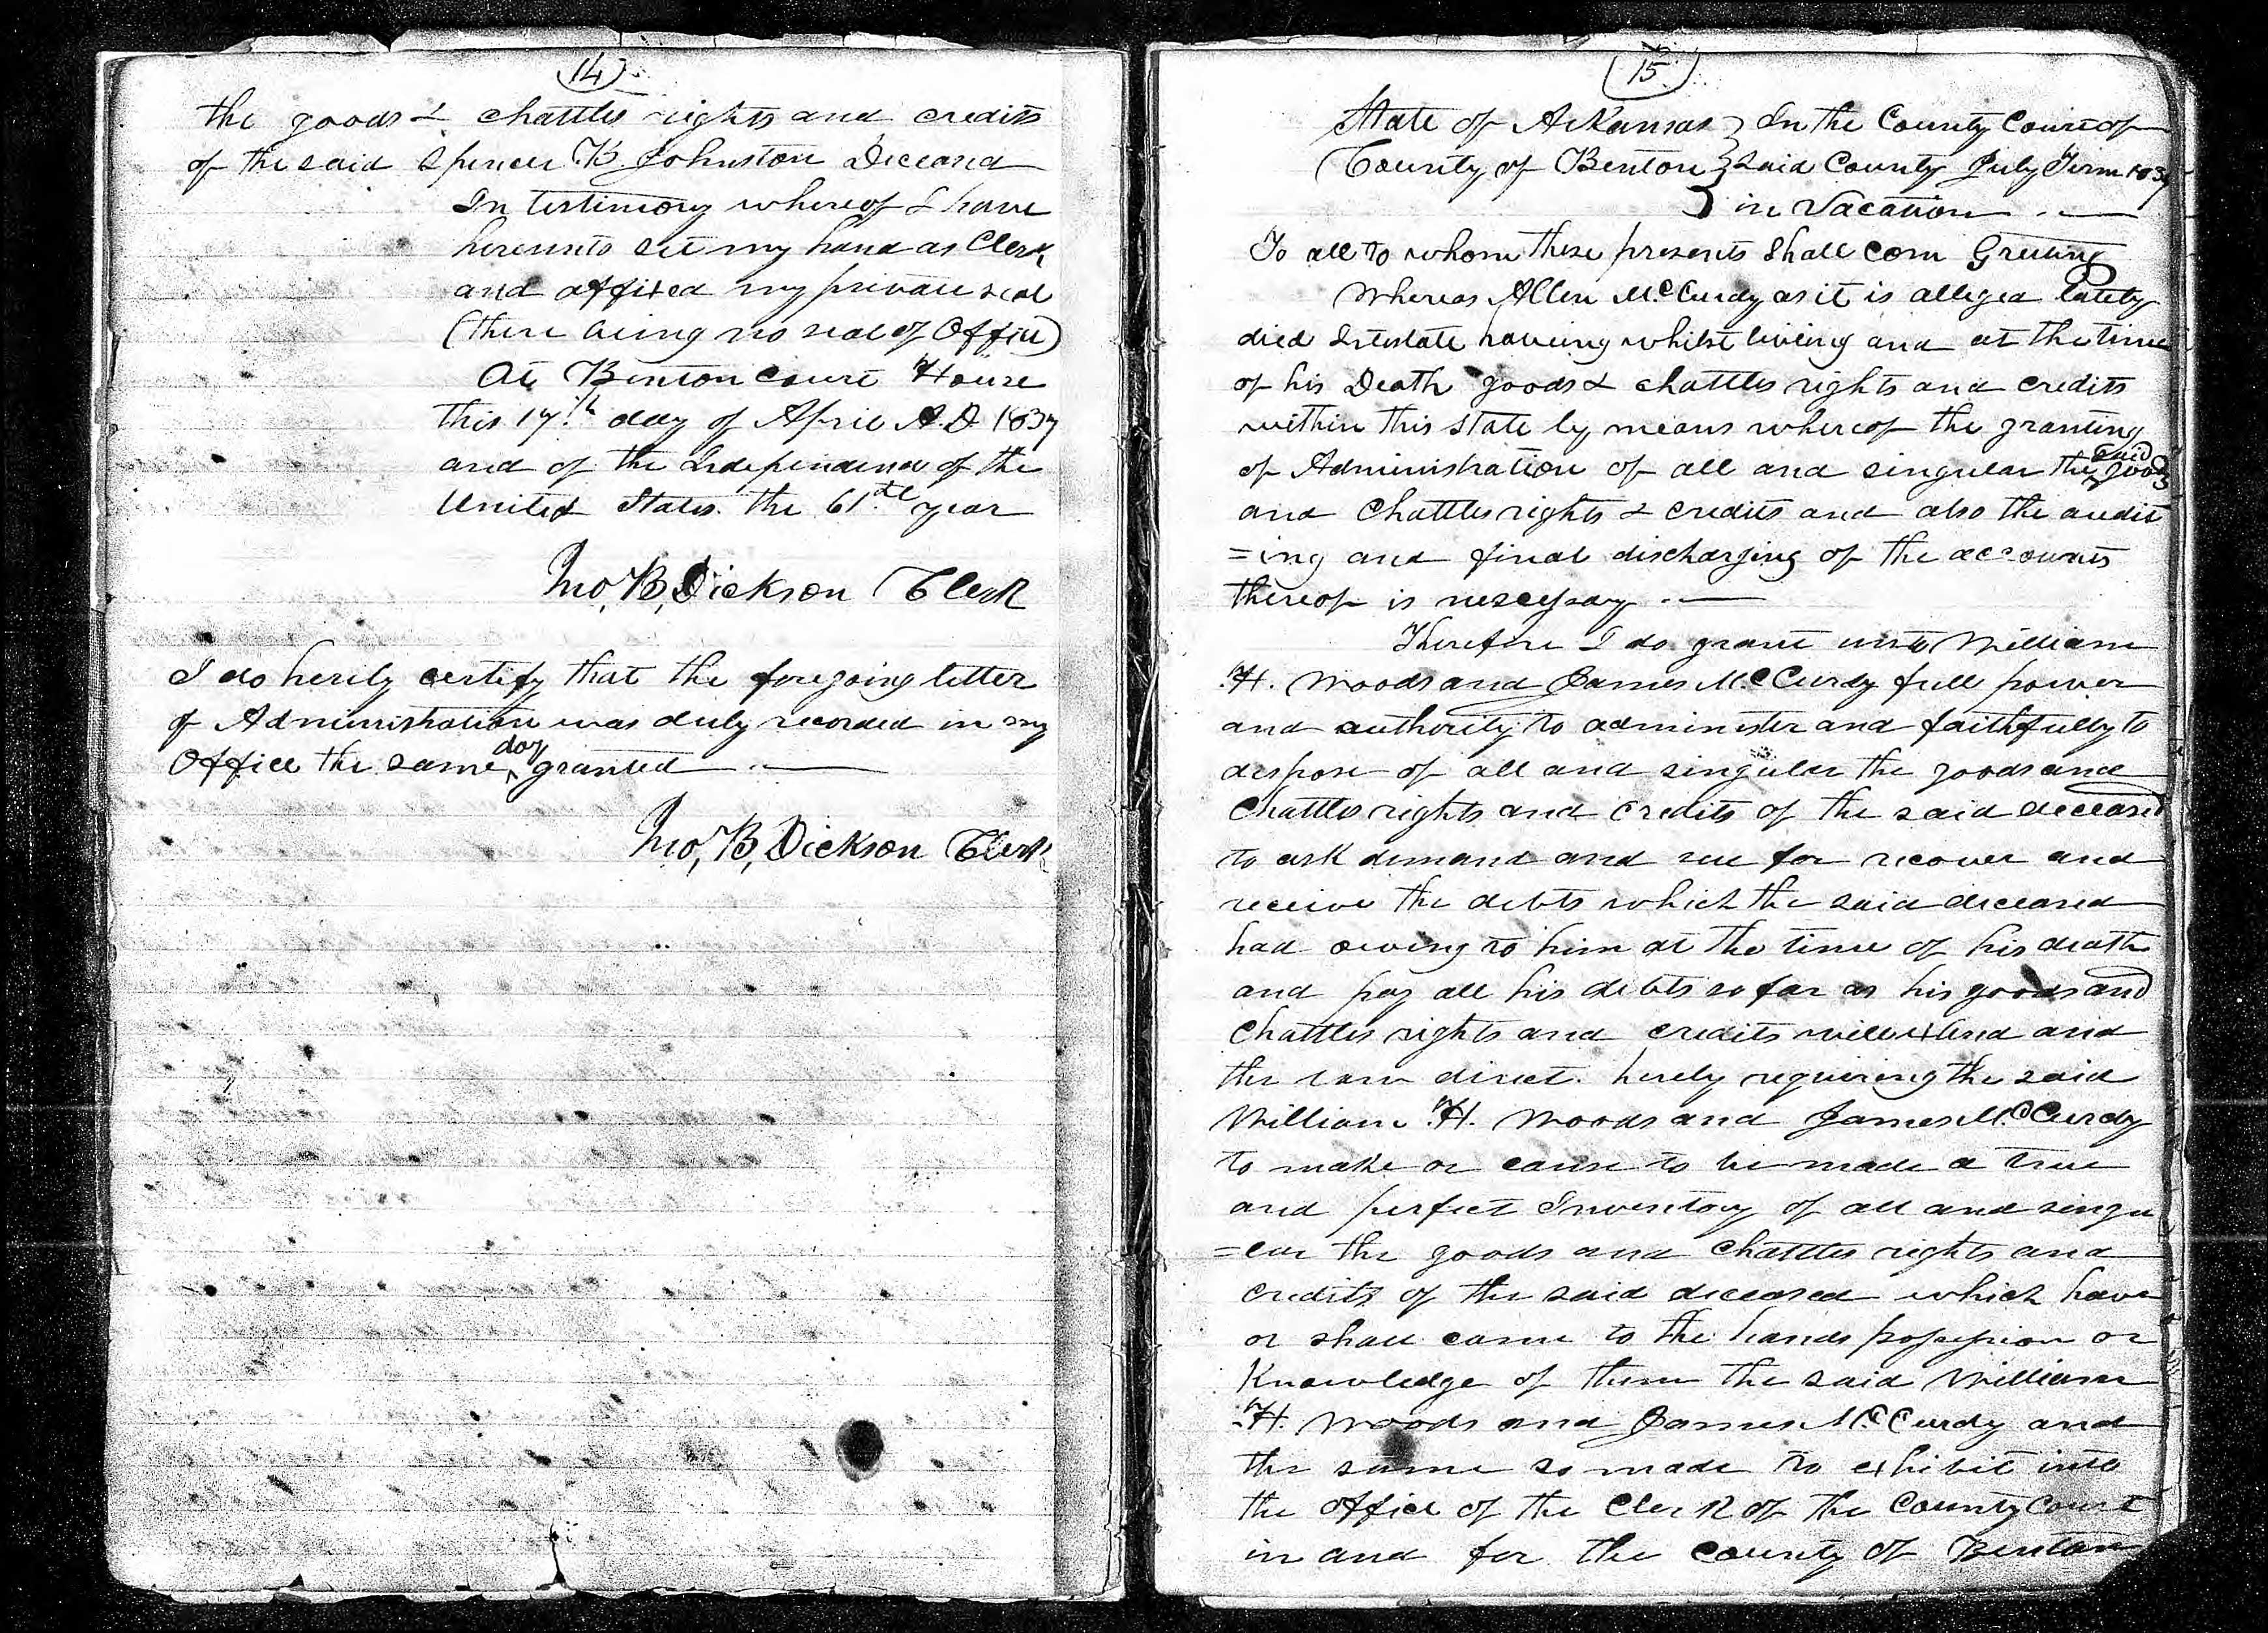 14
the goods & chattles rights and credits
of the said Spencer B. Johnston Deceased
In testimony whereof I have
hereunto set my hand as Clerk
and affixed my private seal
(there being no seal of Office)
At Benton Court House
this 17th day of April A.D. 1837
and of the Independence of the
United States the 61st year
Jno, B, Dickson Clerk
I do herely certify that the foregoing letter
of Administration was duly recorded in my
Office the same day granted
Jno, B, Dickson Clerk
15
State of Arkansas } In the County Court of
County of Benton } Said County July Term 1837
} in Vacation
To all to whom these presents Shall Com Greeting
Whereas Allen McCurdy as it is alleged lately
died Intestate having whilst liveing and at the time
of his Death goods & chattles rights and credits
within this State by means whereof the granting
of Administration of all and singular the said goods
and Chattles rights & credits and also the audit
=ing and final discharging of the accounts
thereof is nescessary
Therefore I do grant unto William
H. Woods and James McCurdy full power
and authority to administer and faithfully to
dispose of all and singular the goods and
Chattles rights and credits of the said deceased
to ask demand and sue for recover and
receive the debts which the said deceased
had owing to him at the time of his death
and pay all his debts so far as his goods and
Chattles rights and credits will extend and
the law direct. herely requireing the said
William H. Woods and James McCurdy
to make or cause to be made a true
and perfect Inventory of all and singu
=lar the goods and Chattles rights and
credits of the said deceased which have
or shall come to the hands possession or
Knowledge of them the said William
H. Woods and James McCurdy and
the same so made to exhibit into
the Office of the Clerk of the County Court
in and for the county of Benton